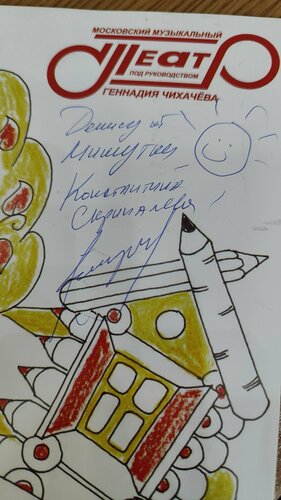 МОСКОВСКИЙ МУЗЫКАЛЬНЫЙ
ТЕАТР
ПОД РУКОВОДСТВОМ
ГЕННАДИЯ ЧИХАЧЁВА
Денису от
Мишутки
Константина
Скрипалёва!